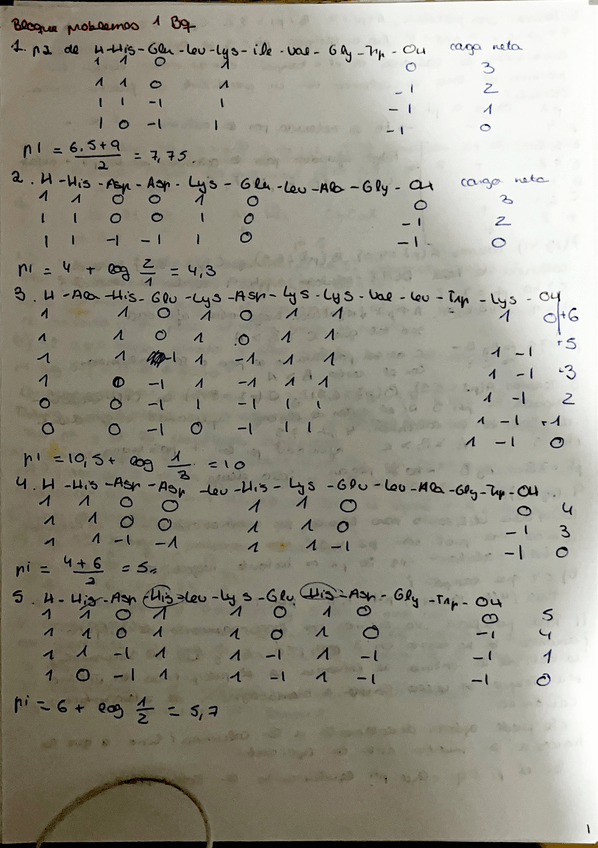 Bloque problemas 1 Bq
1. pI de H-His-Glu-Leu-Lys-ile-Val-Gly-Trp-OH carga neta
1 1 0 1 0 3
1 1 0 1 -1 2
1 1 -1 1 -1 1
1 0 -1 1 -1 0
pI = 6,5+9 / 2 = 7,75.
2. H-His-Asp-Asp-Lys-Glu-Leu-Ala-Gly-OH carga neta
1 1 0 0 1 0 0 3
1 1 0 0 1 0 -1 2
1 1 -1 -1 1 0 -1 0
pi = 4 + log 2/1 = 4,3
3. H-Ala-His-Glu-Lys-Asp-Lys-Lys-Val-Leu-Trp-Lys-OH
1 1 0 1 0 1 1 1 0 +6
1 1 0 1 0 1 1 1 -1 +5
1 1 -1 1 -1 1 1 1 -1 3
1 0 -1 1 -1 1 1 1 -1 2
0 0 -1 1 -1 1 1 1 -1 +1
0 0 -1 0 -1 1 1 1 -1 0
pi = 10,5 + log 1/3 = 10
4. H-His-Asp-Asp-Leu-His-Lys-Glu-Leu-Ala-Gly-Trp-OH
1 1 0 0 1 1 0 0 4
1 1 0 0 1 1 0 -1 3
1 1 -1 -1 1 1 -1 -1 0
pi = 4+6 / 2 = 5
5. H-His-Asp-His-Leu-Lys-Glu-His-Asp-Gly-Trp-OH
1 1 0 1 1 0 1 0 0 5
1 1 0 1 1 0 1 0 -1 4
1 1 -1 1 1 -1 1 -1 -1 1
1 0 -1 1 1 -1 1 -1 -1 0
pi = 6 + log 1/2 = 5,7
1